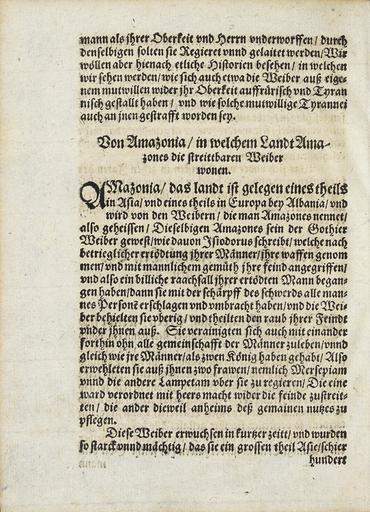 mann als jhrer Oberkeit vnd Herrn vnderworffen / durch
denselbigen solten sie Regieret vnnd gelaitet werden / Wir
wöllen aber hienach etliche Historien besehen / in welchen
wir sehen werden / wie sich auch etwa die Weiber auß eige-
nem mutwillen wider jhr Oberkeit auffrürisch vnd Tyran
nisch gestallt haben / vnd wie solche mutwillige Tyrannei
auch an jnen gestrafft worden sey.
Von Amazonia / in welchem Landt Ama-
zones die streittbaren Weiber
wonen.
AMazonia / das landt ist gelegen eines theils
in Asia / vnd eines theils in Europa bey Albania / vnd
wird von den Weibern / die man Amazones nennet /
also geheissen / Dieselbigen Amazones sein der Gothier
Weiber gewest / wie dauon Isiodorus schreibt / welche nach
betrieglicher ertödtung jhrer Männer / jhre waffen genom
men / vnd mit mannlichem gemüth jhre feind angegriffen /
vnd also ein billiche raach fall jhrer ertödten Mann began-
gen haben / dann sie mit der schärpff des schwerds alle man-
nes Personē erschlagen vnd vmbracht haben / vnd die Wei-
ber behielten sie vberig / vnd theilten den raub jhrer Feindt
vnder jhnen auß. Sie verainigten sich auch mit einander
forthin ohn alle gemeinschafft der Männer zuleben / vnnd
gleich wie jre Männer / als zwen König haben gehabt / Also
erwehleten sie auß jhnen zwo frawen / nemlich Mersepiam
vnnd die andere Lampetam vber sie zu regieren / Die eine
ward verordnet mit heers macht wider die feinde zustreit-
ten / die ander dieweil anheims deß gemainen nutzes zu
pflegen.
Diese Weiber erwuchsen in kurtzer zeitt / vnd wurden
so starck vnnd mächtig / das sie ein grossen theil Asie / schier
hundert